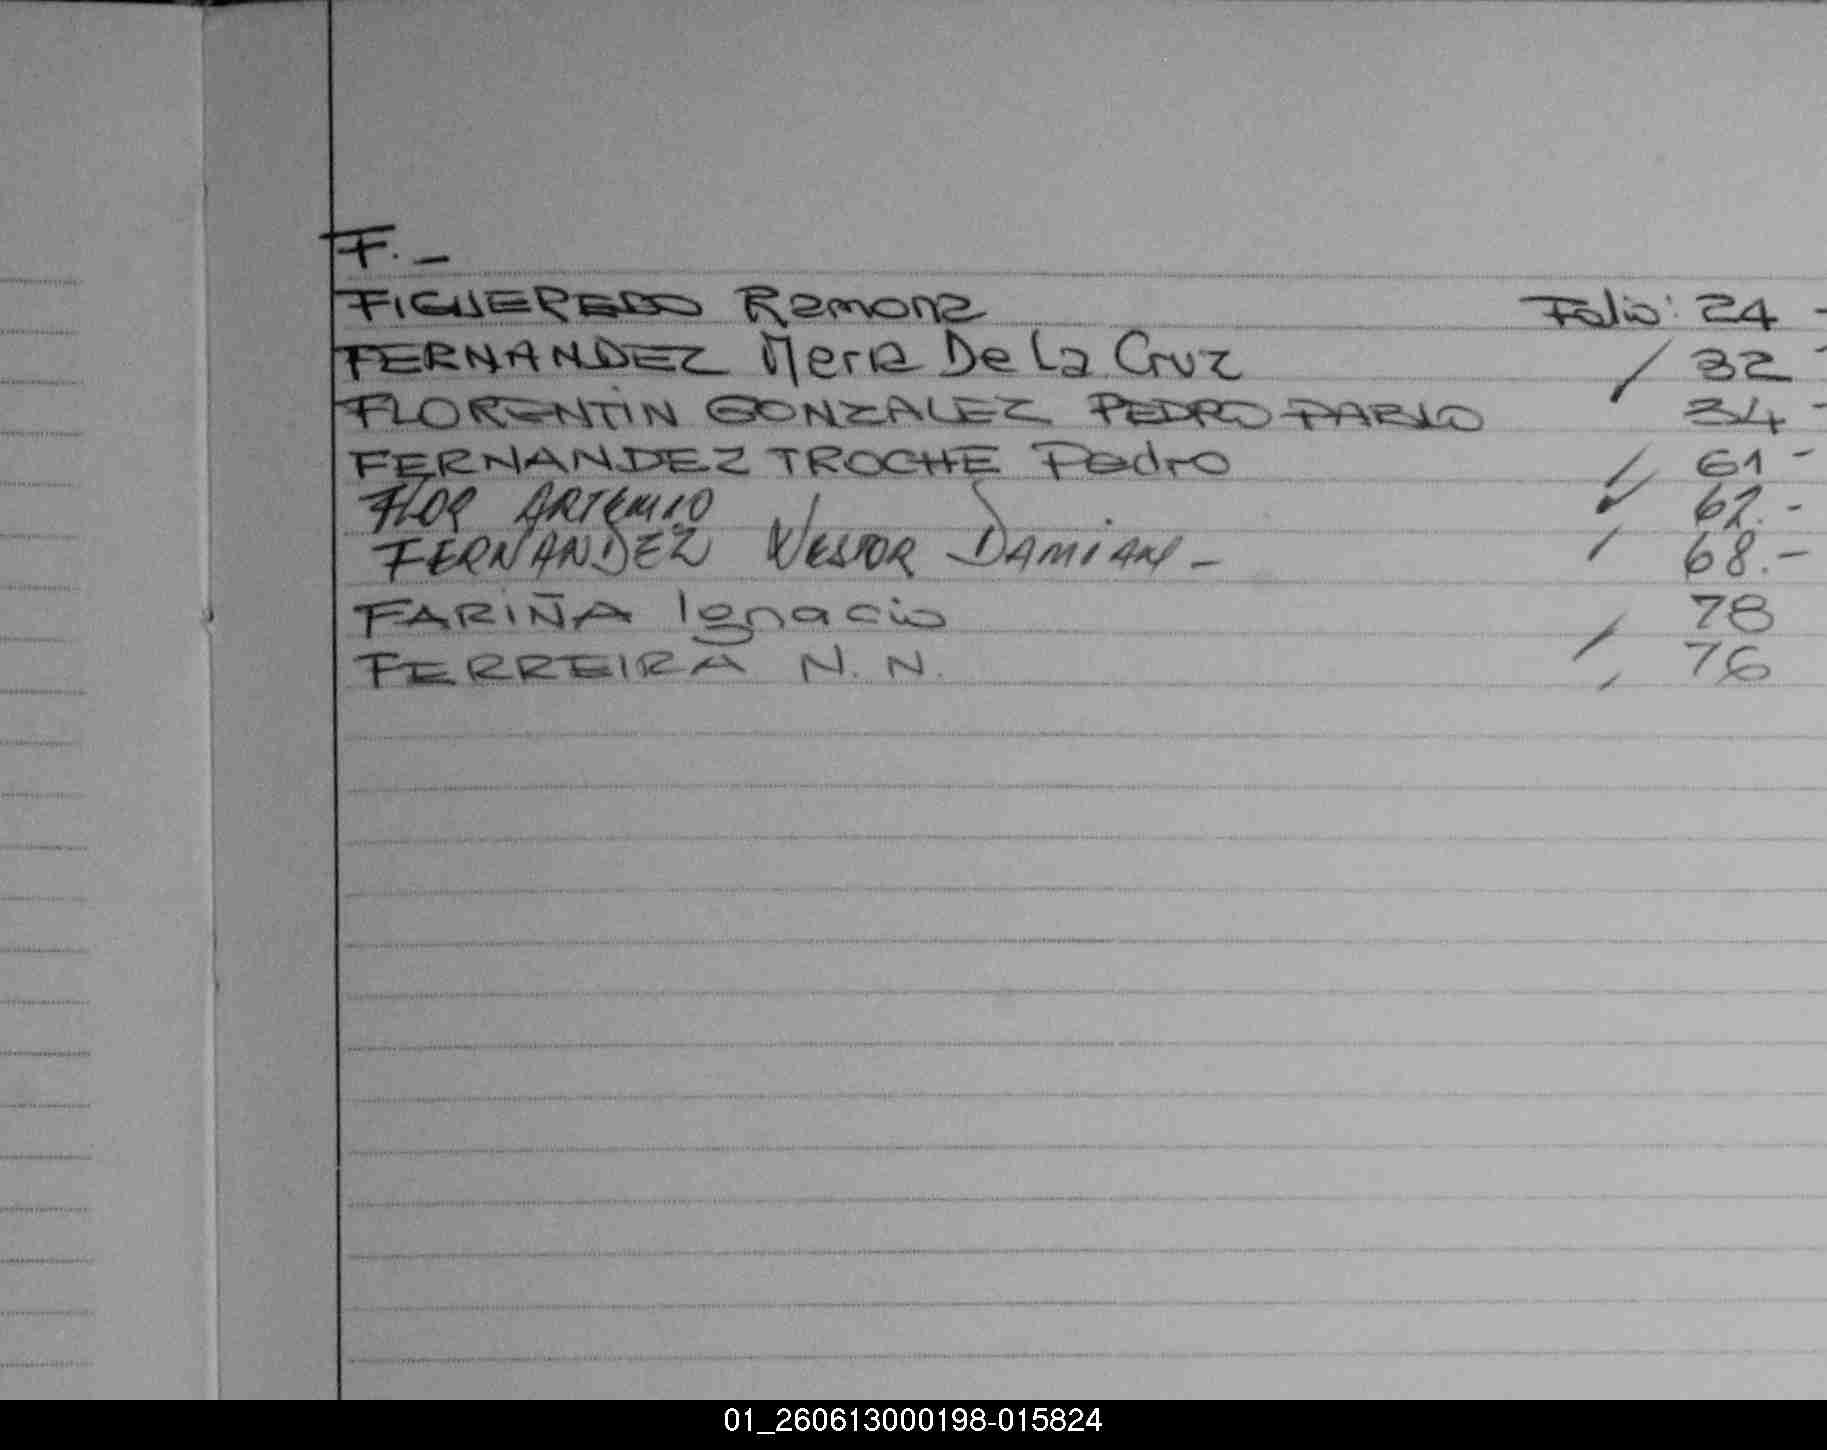 F. -
FIGUEREDO Ramona Folio: 24 -
FERNANDEZ Maria De La Cruz / 32 -
FLORENTIN GONZALEZ PEDRO PABLO 34 -
FERNANDEZ TROCHE Pedro 61 -
FLOR ARTEMIO 62.-
FERNANDEZ NESTOR DAMIAN - 68.-
FARIÑA Ignacio 78
FERREIRA N. N. 76
01_260613000198-015824